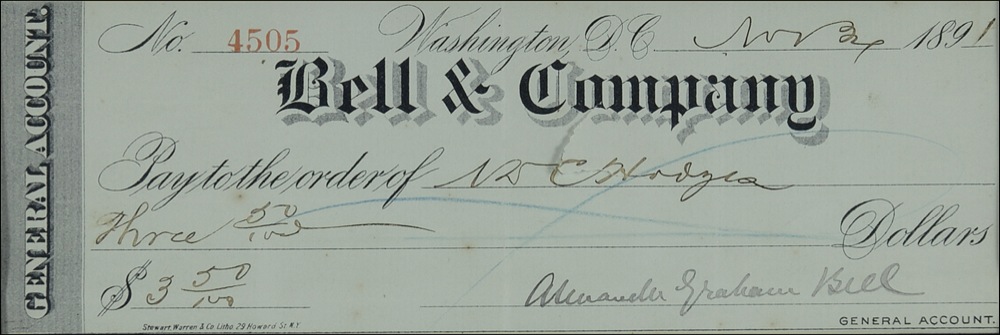 GENERAL ACCOUNT.
No. 4505 Washington, D.C. Nov 1891
Bell & Company
Pay to the order of N D C Hodges
Three 50/100 Dollars
$ 3 50/100
Alexander Graham Bell
Stewart, Warren & Co. Litho. 29 Howard St. N.Y.
GENERAL ACCOUNT.